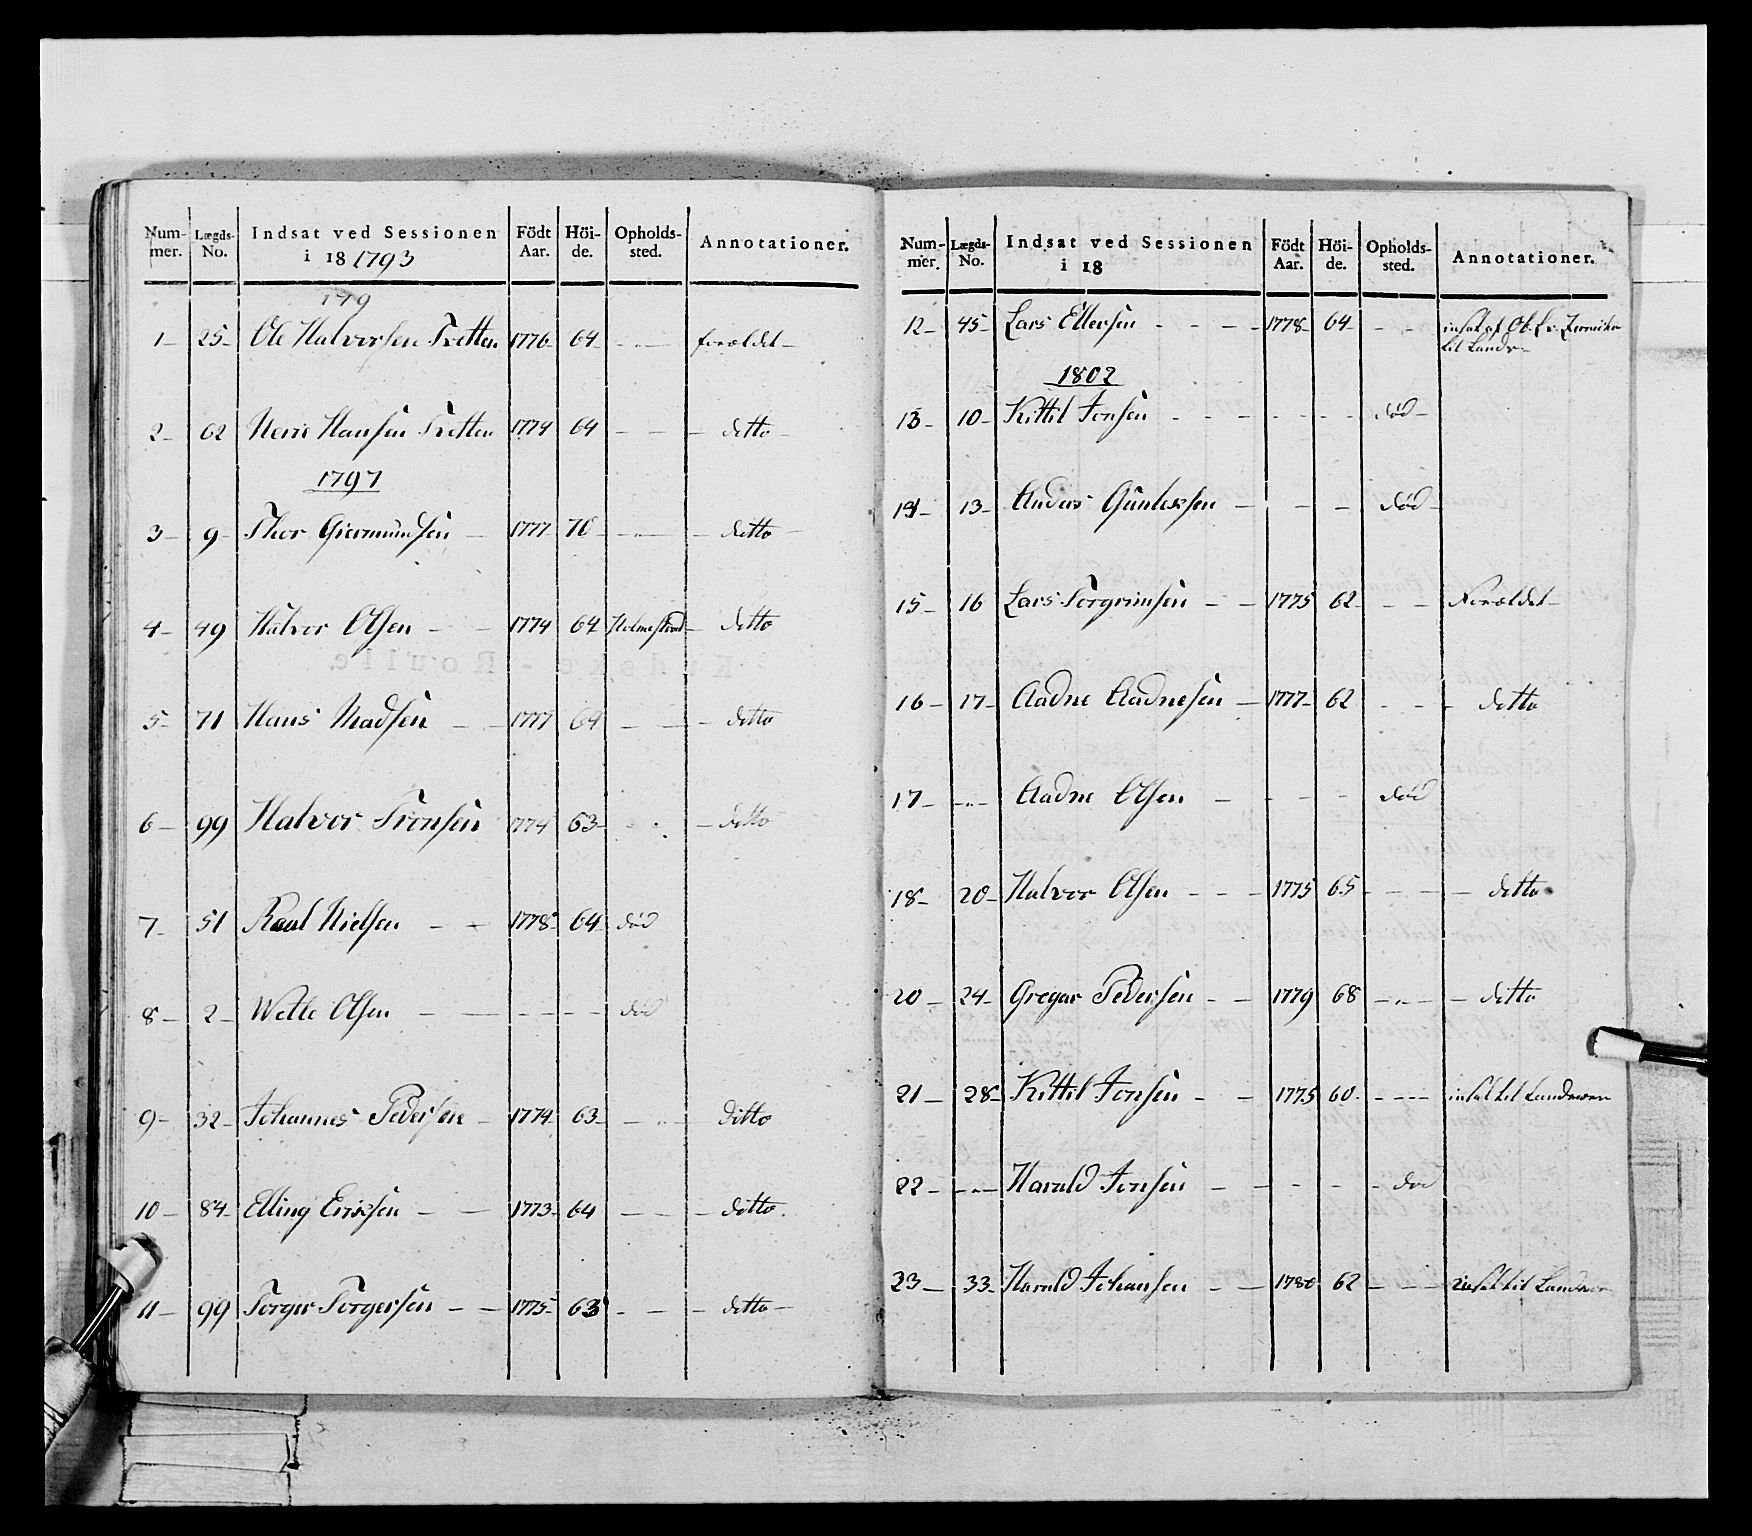 Num- Lægds- Indsat ved Sessionen Födt Höi- Opholds- Annotationer.
mer. No. i 18 1793 Aar. de. sted.
179
1 – 25 – Ole Halvorsen Tvetten 1776 – 64 – – „ – forældet –
2 – 62 Hansen Tvetten 1774 64 – – – detto –
1797
3 – 9 – Thor Giermundsen – 1777 – 70 – – „ – – detto –
4 – 49 Halvor Olsen – – 1774 64 Holmestrand – detto
5 – 71 Hans Madsen – – 1777 64 – – – detto
6 – 99 Halvor Tronsen 1774 63 – – detto
7 – 51 Nielsen – – 1778 – 64 – död
8 – 2 – Wetle Olsen – – – – – död
9 – 32 – Johannes Pedersen – 1774 – 63 – – „ – ditto
10 – 84 – Elling Erichsen – – 1773 – 64 – – – detto.
11 – 99 Torger Torgersen – – 1775 – 63 – – – detto –
Num- Lægds- Indsat ved Sessionen Födt Höi- Opholds- Annotationer.
mer. No. i 18 Aar. de. sted.
12 – 45 – Lars Ellersen – – – – 1778 – 64 – – – indsat af Ob: L:
til Landv–
1802
13 – 10 – Kittil Jonsen – – – – – – – död –
14 – 13 – Anders Gunlecksen – – – död –
15 – 16 Lars Torgrimsen – – 1775 62 – – – Forældet –
16 – 17 – Aadne Aadnesen – 1777 – 62 – – – detto
17 – – „ – Aadne Olsen – – – – död
18 – 20 – Halvor Olsen – – – 1775 65 – – – – detto
20 – 24 – Gregar Pedersen – – 1779 68 – „ – – detto
21 – 28 – Kittil Jonsen – – 1775 60 – – – – indsat til Landværn
22 – – „ – Harald Jonsen – – – – – död
23 – 33 – Harald Johansen – – 1780 62 – – – indsat til Landværn